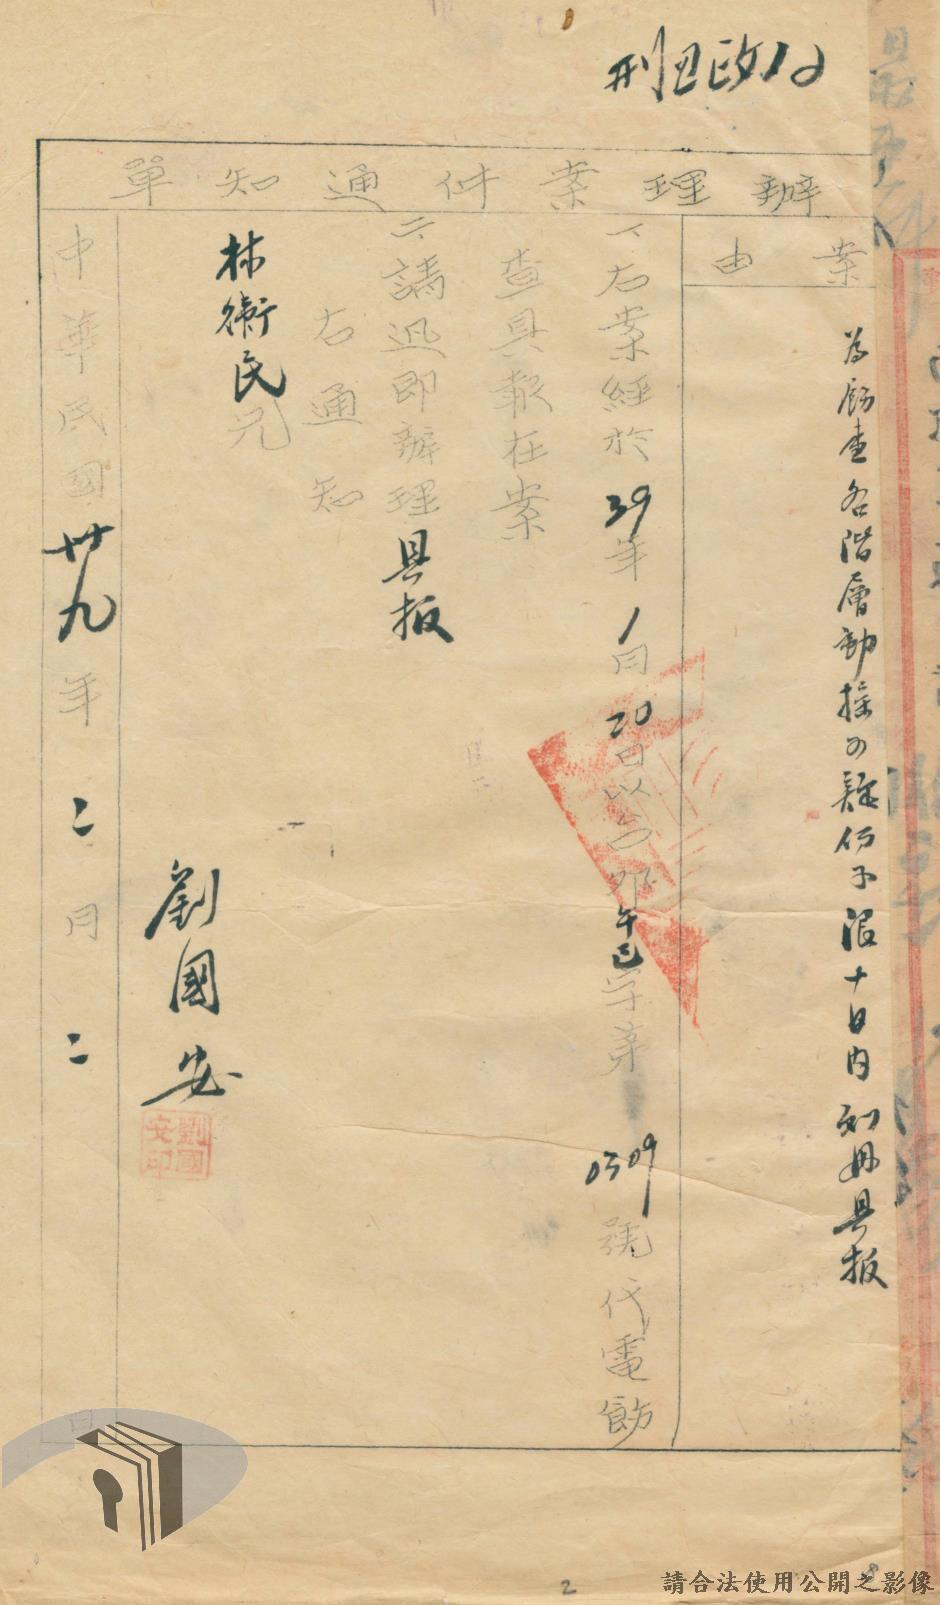 辦理案件通知單
案由
為飭查各階層動搖可疑份子限十日內列冊具报
一、右案經於39年1月20日以
午巳字第0309號代電飭
查具報在案
二、請迅即辦理具报
右通知
林衛民兄
劉國安
劉國安印
中華民國卅九年二月二日
2
8
請合法使用公開之影像